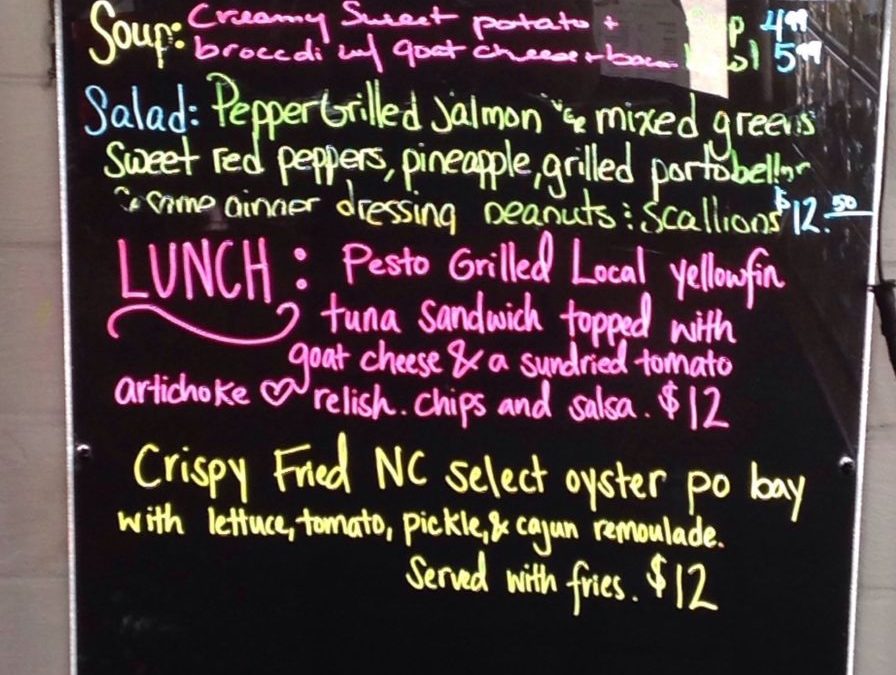 Soup: Creamy Sweet potato + 4.99
broccoli w/ goat cheese + bacon 5.99
Salad: Pepper Grilled Salmon mixed greens
Sweet red peppers, pineapple, grilled portobello
dressing peanuts & scallions $12.50
LUNCH: Pesto Grilled Local yellowfin
tuna sandwich topped with
goat cheese & a sundried tomato
artichoke ♡ relish. chips and salsa. $12
Crispy Fried NC select oyster po bay
with lettuce, tomato, pickle, & cajun remoulade.
Served with fries. $12